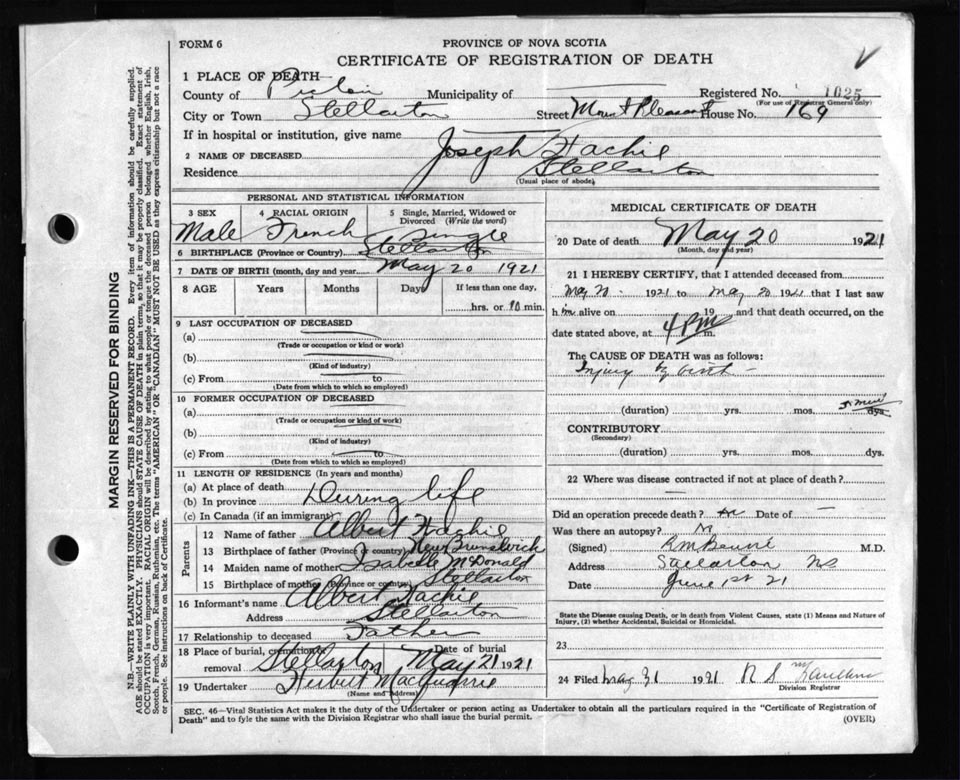 FORM 6
PROVINCE OF NOVA SCOTIA
CERTIFICATE OF REGISTRATION OF DEATH
1 PLACE OF DEATH
County of Pictou Municipality of Registered No. 1025
(For use of Registrar General only)
City or Town Stellarton Street Mount Pleasant House No. 169
If in hospital or institution, give name
2 NAME OF DECEASED Joseph Hachie
Residence Stellarton
(Usual place of abode)
PERSONAL AND STATISTICAL INFORMATION
3 SEX Male
4 RACIAL ORIGIN French
5 Single, Married, Widowed or Divorced (Write the word) Single
6 BIRTHPLACE (Province or Country) Stellarton
7 DATE OF BIRTH (month, day and year) May 20 1921
8 AGE Years Months Days If less than one day,
hrs. or 10 min.
9 LAST OCCUPATION OF DECEASED
(a)
(Trade or occupation or kind or work)
(b)
(Kind of industry)
(c) From to
(Date from which to which so employed)
10 FORMER OCCUPATION OF DECEASED
(a)
(Trade or occupation or kind of work)
(b)
(Kind of industry)
(c) From to
(Date from which to which so employed)
11 LENGTH OF RESIDENCE (In years and months)
(a) At place of death
(b) In province During life
(c) In Canada (if an immigrant)
Parents
12 Name of father Albert Hachie
13 Birthplace of father (Province or country) New Brunswick
14 Maiden name of mother Isabelle McDonald
15 Birthplace of mother (Province or country) Stellarton
16 Informant's name Albert Hachie
Address Stellarton
17 Relationship to deceased Father
18 Place of burial, cremation or removal Stellarton Date of burial May 21 1921
19 Undertaker Herbert MacQuarrie
(Name and Address)
MEDICAL CERTIFICATE OF DEATH
20 Date of death May 20 1921
(Month, day and year)
21 I HEREBY CERTIFY, that I attended deceased from
May 20 1921 to May 20 1921 that I last saw
h im alive on 19 and that death occurred, on the
date stated above, at 4 PM m.
The CAUSE OF DEATH was as follows:
Injury by birth
(duration) yrs. mos. dys.
CONTRIBUTORY
(Secondary)
(duration) yrs. mos. dys.
22 Where was disease contracted if not at place of death?
Did an operation precede death? no Date of
Was there an autopsy? No
(Signed) M.D.
Address Stellarton NS
Date June 1st 21
State the Disease causing Death, or in death from Violent Causes, state (1) Means and Nature of
Injury, (2) whether Accidental, Suicidal or Homicidal.
23
24 Filed May 31 1921 R S
Division Registrar
SEC. 46—Vital Statistics Act makes it the duty of the Undertaker or person acting as Undertaker to obtain all the particulars required in the "Certificate of Registration of
Death" and to fyle the same with the Division Registrar who shall issue the burial permit.
(OVER)
MARGIN RESERVED FOR BINDING
N.B.—WRITE PLAINLY WITH UNFADING INK—THIS IS A PERMANENT RECORD. Every item of information should be carefully supplied.
AGE should be stated EXACTLY. PHYSICIANS should STATE CAUSE OF DEATH in plain terms, so that it may be properly classified. Exact statement of
OCCUPATION is very important. RACIAL ORIGIN will be described by stating to what people or tongue the deceased person belonged whether English, Irish,
Scotch, French, German, Russian, Ruthenian, etc. The terms "AMERICAN" or "CANADIAN" MUST NOT BE USED as they express citizenship but not a race
or people. See instructions on back of Certificate.